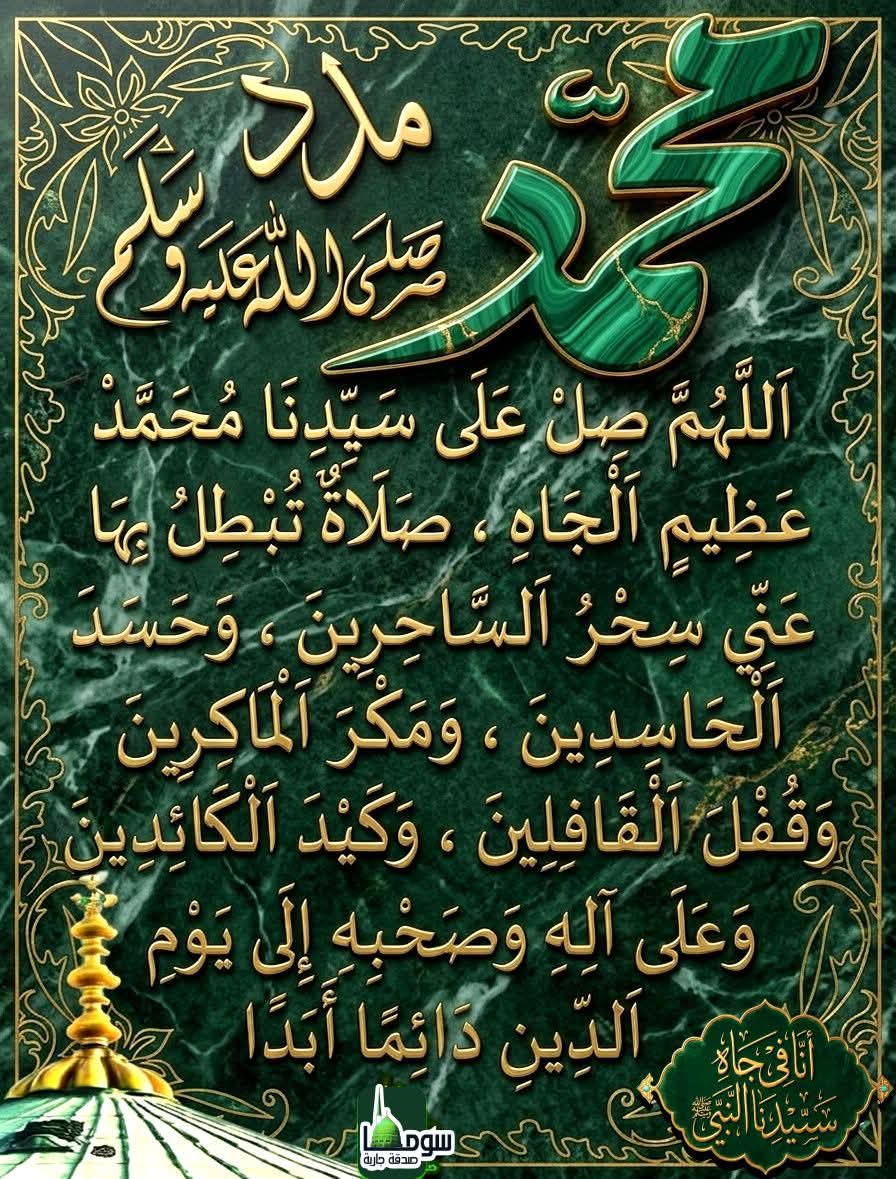 محمد
مدد
صَلَى اللَّه عَلَيه وَسَلَم
اَللَّهُمَّ صِلْ عَلَى سَيِّدِنَا مُحَمَّدْ
عَظِيمٍ اَلْجَاهِ ، صَلَاةٌ تُبْطِلُ بِهَا
عَنِّي سِحْرُ اَلسَّاحِرِينَ ، وَحَسَدَ
اَلْحَاسِدِينَ ، وَمَكْرَ اَلْمَاكِرِينَ
وَقُفْلَ اَلْقَافِلِينَ ، وَكَيْدَ اَلْكَائِدِينَ
وَعَلَى آلِهِ وَصَحْبِهِ إِلَى يَوْمِ
اَلدِّينِ دَائِمًا أَبَدًا
أنَا فِي جَاهِ
سَيِّدِنَا النَّبِيِّ ﷺ
سوما
صدقة جارية